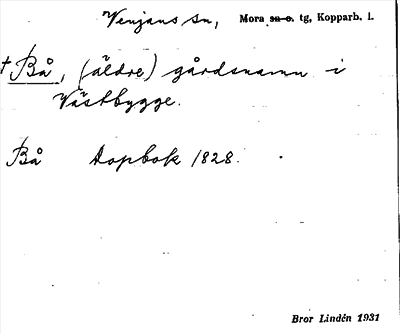 Venjans sn, Mora sn o. tg, Kopparb. l.
† Bå, (äldre) gårdsnamn i
Västbygge.
Bå dopbok 1828.
Bror Lindén 1931